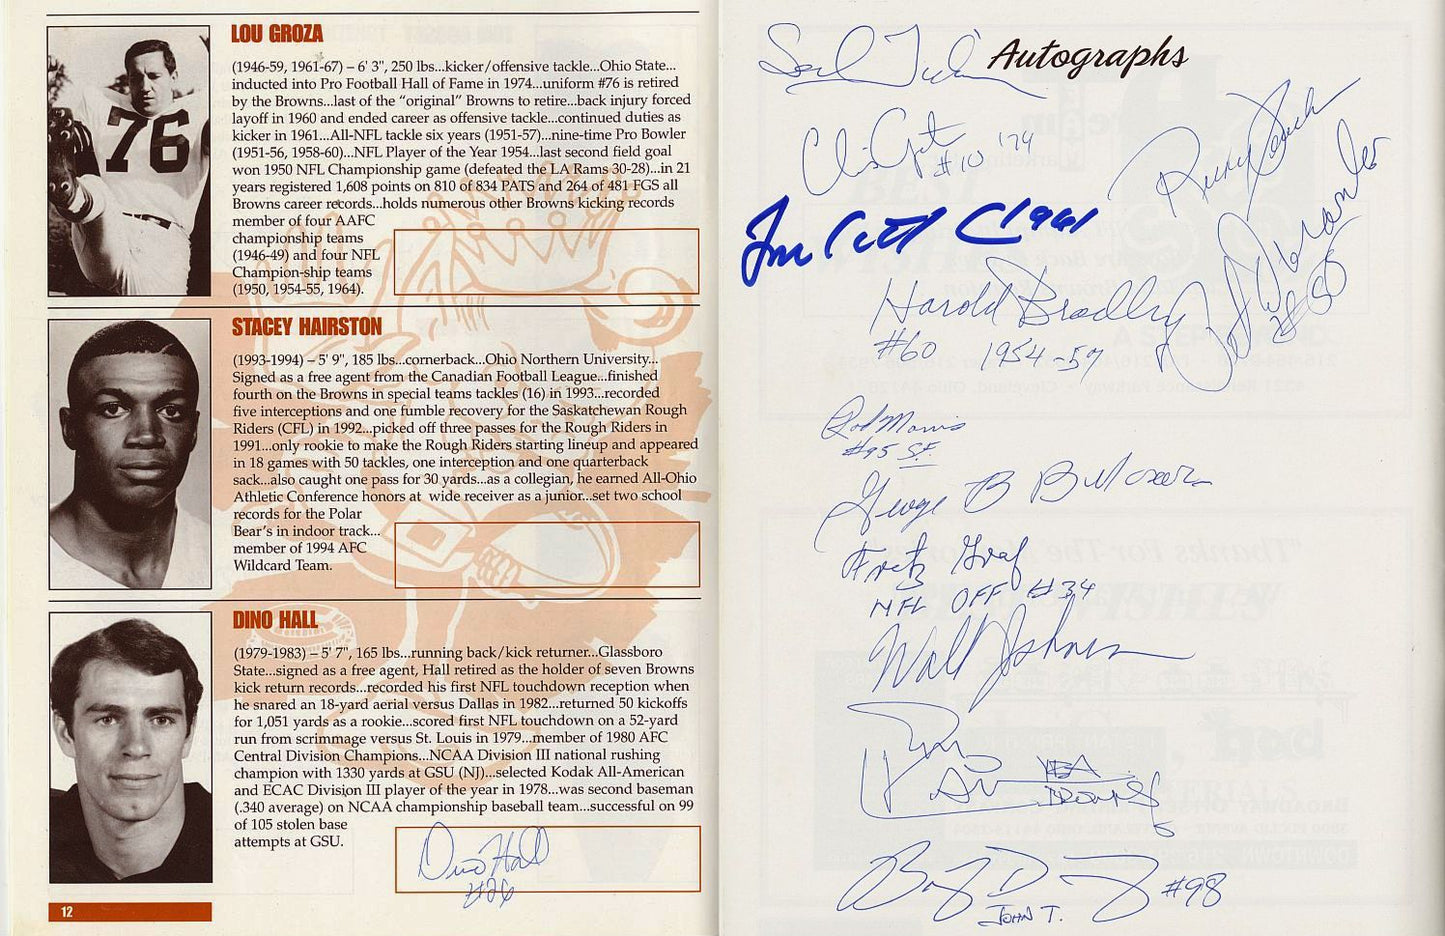 LOU GROZA
(1946-59, 1961-67) – 6' 3", 250 lbs...kicker/offensive tackle...Ohio State...
inducted into Pro Football Hall of Fame in 1974...uniform #76 is retired
by the Browns...last of the "original" Browns to retire...back injury forced
layoff in 1960 and ended career as offensive tackle...continued duties as
kicker in 1961...All-NFL tackle six years (1951-57)...nine-time Pro Bowler
(1951-56, 1958-60)...NFL Player of the Year 1954...last second field goal
won 1950 NFL Championship game (defeated the LA Rams 30-28)...in 21
years registered 1,608 points on 810 of 834 PATS and 264 of 481 FGS all
Browns career records...holds numerous other Browns kicking records
member of four AAFC
championship teams
(1946-49) and four NFL
Champion-ship teams
(1950, 1954-55, 1964).
76
STACEY HAIRSTON
(1993-1994) – 5' 9", 185 lbs...cornerback...Ohio Northern University...
Signed as a free agent from the Canadian Football League...finished
fourth on the Browns in special teams tackles (16) in 1993...recorded
five interceptions and one fumble recovery for the Saskatchewan Rough
Riders (CFL) in 1992...picked off three passes for the Rough Riders in
1991...only rookie to make the Rough Riders starting lineup and appeared
in 18 games with 50 tackles, one interception and one quarterback
sack...also caught one pass for 30 yards...as a collegian, he earned All-Ohio
Athletic Conference honors at wide receiver as a junior...set two school
records for the Polar
Bear's in indoor track...
member of 1994 AFC
Wildcard Team.
DINO HALL
(1979-1983) – 5' 7", 165 lbs...running back/kick returner...Glassboro
State...signed as a free agent, Hall retired as the holder of seven Browns
kick return records...recorded his first NFL touchdown reception when
he snared an 18-yard aerial versus Dallas in 1982...returned 50 kickoffs
for 1,051 yards as a rookie...scored first NFL touchdown on a 52-yard
run from scrimmage versus St. Louis in 1979...member of 1980 AFC
Central Division Champions...NCAA Division III national rushing
champion with 1330 yards at GSU (NJ)...selected Kodak All-American
and ECAC Division III player of the year in 1978...was second baseman
(.340 average) on NCAA championship baseball team...successful on 99
of 105 stolen base
attempts at GSU.
Dino Hall
#26
12
Autographs
#10 '74
Harold Bradley
#60 1954-57
#95 SF
George B
Fritz Graf
NFL OFF #34
Walt Johnson
#98
JOHN T.